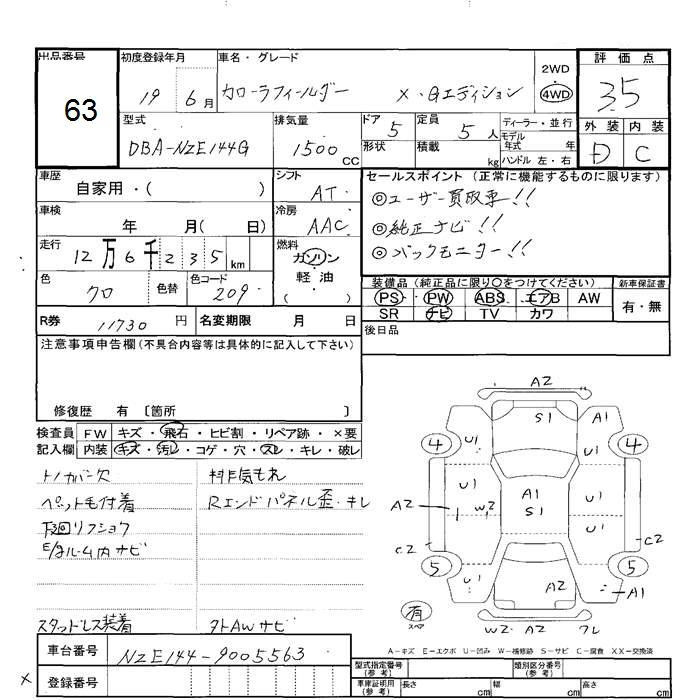 出品番号
63
初度登録年月
19 6月
車名・グレード
カローラフィールダー X・Gエディション
2WD
4WD
評価点
3.5
外装 内装
D C
型式
DBA-NZE144G
排気量
1500 CC
ドア 5
形状
定員 5人
積載 kg
ディーラー・並行
モデル年式 年
ハンドル 左・右
車歴
自家用・( )
シフト
AT
車検
年 月( 日)
冷房
AAC
走行
12万6千235km
燃料
ガソリン
軽油
( )
色
クロ
色替
色コード
209
R券 11730円
名変期限 月 日
セールスポイント (正常に機能するものに限ります)
◎ユーザー買取車!!
◎純正ナビ!!
◎バックモニター!!
装備品(純正品に限り○をつけてください)
PS PW ABS エアB AW
SR ナビ TV カワ
新車保証書
有・無
後日品
注意事項申告欄(不具合内容等は具体的に記入して下さい)
修復歴 有 〔箇所 〕
検査員記入欄
FW キズ・飛石・ヒビ割・リペア跡・×要
内装 キズ・汚レ・コゲ・穴・スレ・キレ・破レ
トノカバー欠
ペット毛付着
下廻リフショク
E/gルーム内サビ
スタッドレス装着
Rエンドパネル歪・キレ
外AWサビ
A2
S1
A1
4
4
U1
U1
U1
U1
A1
S1
W2
U1
A2
C2
C2
5
5
U1
A2
A1
有
スペア
W2 A2 ワレ
A-キズ E-エクボ U-凹み W-補修跡 S-サビ C-腐食 XX-交換済
車台番号
NZE144-9005563
×
登録番号
型式指定番号(参考)
類別区分番号(参考)
車庫証明用(参考)
長さ cm
幅 cm
高さ cm